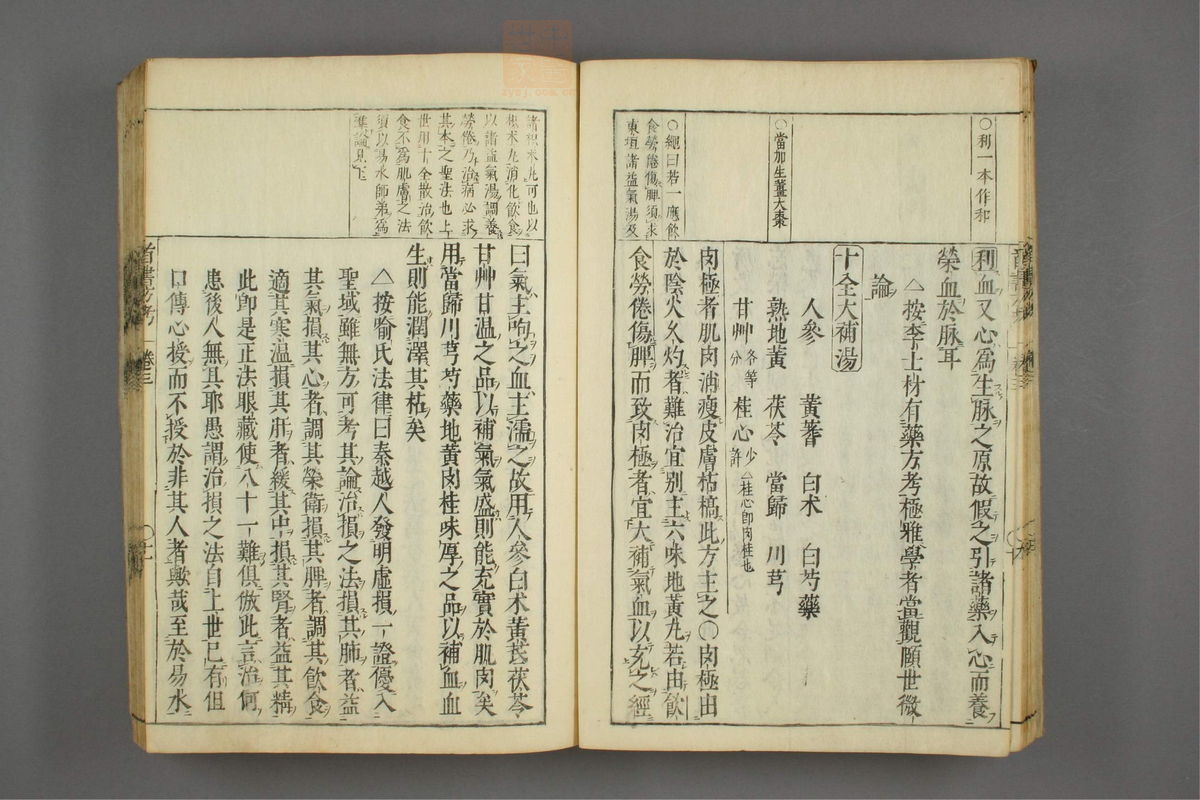 ○利一本作和
○當加生薑大棗
○繩曰若一應飲
食勞倦傷脾須求
東垣諸益氣湯及
利血又心爲生脉之原故假之引諸藥入心而養
榮血於脉耳
△按李士材有藥方考極雅學者當觀願世微
論
十全大補湯
人參 黃蓍 白术 白芍藥
熟地黃 茯苓 當歸 川芎
甘艸各等分 桂心少許 △桂心卽肉桂也
肉極者肌肉消瘦皮膚枯槁此方主之○肉極由
於陰火久灼者難治宜别主六味地黃丸若由飲
食勞倦傷脾而致肉極者宜大補氣血以充之經
諸枳术丸可也以
枳术丸消化飲食
以諸益氣湯調養
勞倦乃治病必求
其本之聖法也上
世用十全散治飲
食不爲肌膚之法
須以易水師弟爲
準論見下
曰氣主呴之血主濡之故用人參白术黃茋茯苓
甘艸甘温之品以補氣氣盛則能充實於肌肉矣
用當歸川芎芍藥地黃肉桂味厚之品以補血血
生則能潤澤其枯矣
△按喻氏法律曰秦越人發明虛損一證優入
聖域雖無方可考其論治損之法損其肺者益
其氣損其心者調其榮衛損其脾者調其飲食
適其寒温損其肝者緩其中損其腎者益其精
此卽是正法眼藏使八十一難俱倣此言治何
患後人無具耶愚謂治損之法自上世已有但
口傳心授而不授於非其人者歟哉至於易水
卷三